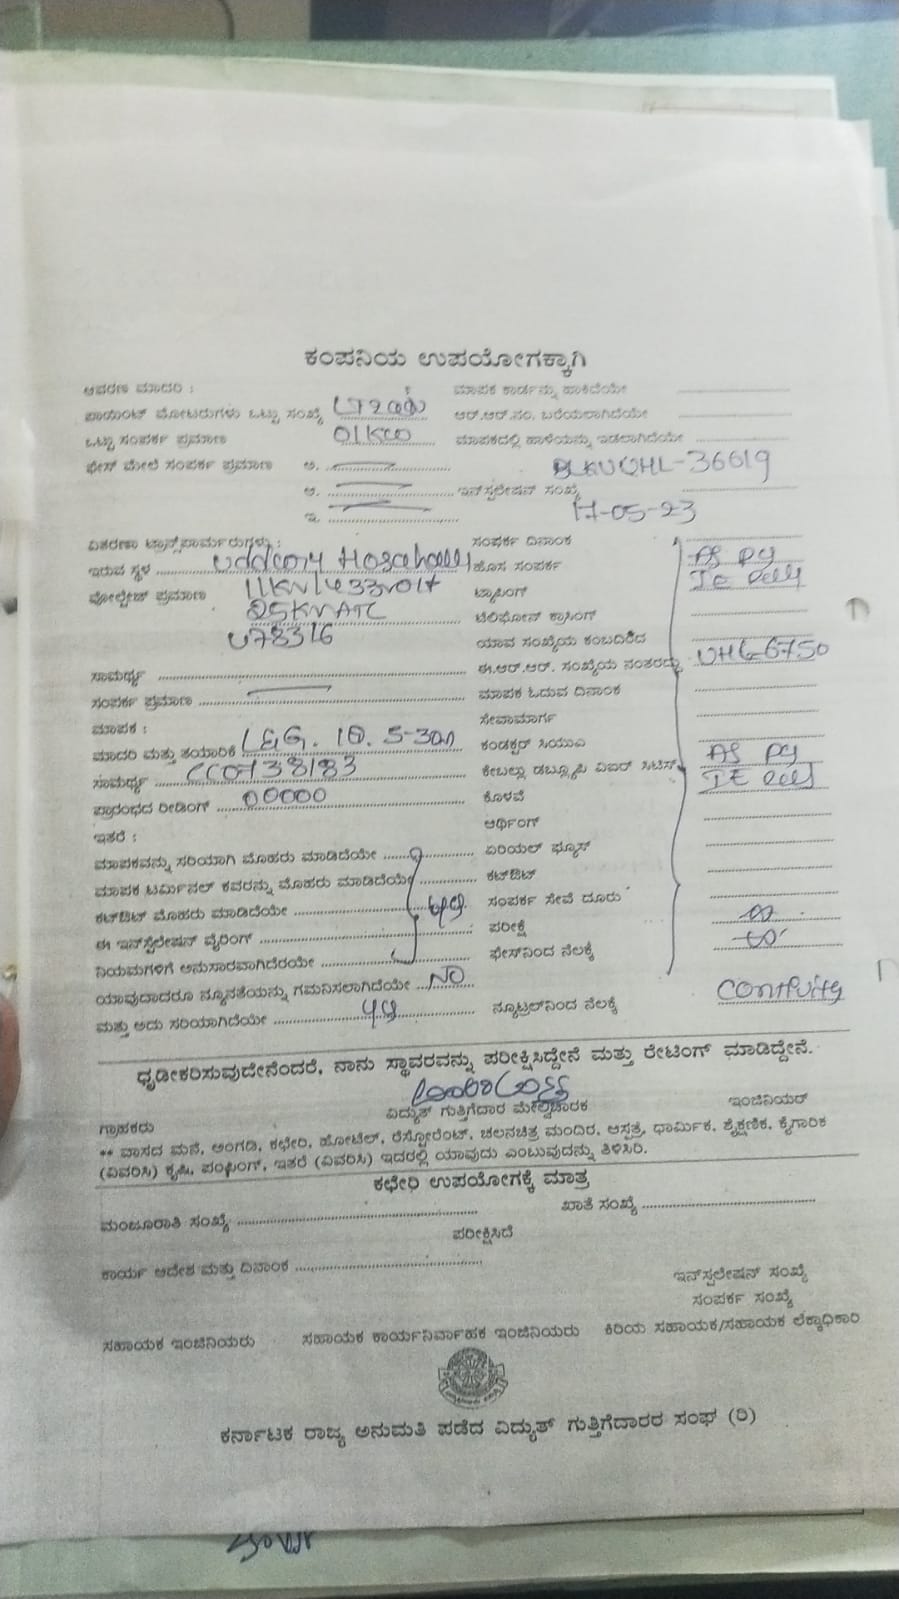 ಕಂಪನಿಯ ಉಪಯೋಗಕ್ಕಾಗಿ
ಆವರಣ ಮಾದರಿ : ಮಾಪಕ ಕಾರ್ಡನ್ನು ಹಾಕಿದೆಯೇ
ಪಾಯಿಂಟ್ ಮೋಟರುಗಳು ಒಟ್ಟು ಸಂಖ್ಯೆ ಆರ್.ಆರ್.ನಂ. ಬರೆಯಲಾಗಿದೆಯೇ
ಒಟ್ಟು ಸಂಪರ್ಕ ಪ್ರಮಾಣ 01KW ಮಾಪಕದಲ್ಲಿ ಹಾಳೆಯನ್ನು ಇಡಲಾಗಿದೆಯೇ
ಫೇಸ್ ಮೇಲೆ ಸಂಪರ್ಕ ಪ್ರಮಾಣ ಅ. 36619
ಆ. ಇನ್‌ಸ್ಟಲೇಷನ್ ಸಂಖ್ಯೆ
ಇ. 17-05-23
ವಿತರಣಾ ಟ್ರಾನ್ಸ್‌ಫಾರ್ಮರುಗಳು : ಸಂಪರ್ಕ ದಿನಾಂಕ
ಇರುವ ಸ್ಥಳ ಹೊಸ ಸಂಪರ್ಕ
ವೋಲ್ಟೇಜ್ ಪ್ರಮಾಣ 11KV/433Volt ಟ್ಯಾಪಿಂಗ್
ಟೆಲಿಫೋನ್ ಕ್ರಾಸಿಂಗ್
ಯಾವ ಸಂಖ್ಯೆಯ ಕಂಬದಿಂದ
ಸಾಮರ್ಥ್ಯ ಈ.ಆರ್.ಆರ್. ಸಂಖ್ಯೆಯ ನಂತರದ್ದು UHL-6750
ಸಂಪರ್ಕ ಪ್ರಮಾಣ ಮಾಪಕ ಓದುವ ದಿನಾಂಕ
ಮಾಪಕ : ಸೇವಾಮಾರ್ಗ
ಮಾದರಿ ಮತ್ತು ತಯಾರಿಕೆ L&G. 10. 5-30A ಕಂಡಕ್ಟರ್ ಸಿಯುಎ
ಸಾಮರ್ಥ್ಯ ಕೇಬಲ್ಲು ಡಬ್ಲ್ಯೂಪಿ ವಿಐಆರ್ ಸಿಟಿಸ್
ಪ್ರಾರಂಭದ ರೀಡಿಂಗ್ 00000 ಕೊಳವೆ
ಇತರೆ : ಅರ್ಥಿಂಗ್
ಮಾಪಕವನ್ನು ಸರಿಯಾಗಿ ಮೊಹರು ಮಾಡಿದೆಯೇ ಏರಿಯಲ್ ಫ್ಯೂಸ್
ಮಾಪಕ ಟರ್ಮಿನಲ್ ಕವರನ್ನು ಮೊಹರು ಮಾಡಿದೆಯೇ ಕಟ್‌ಔಟ್
ಕಟ್‌ಔಟ್ ಮೊಹರು ಮಾಡಿದೆಯೇ ಸಂಪರ್ಕ ಸೇವೆ ದೂರು
ಈ ಇನ್‌ಸ್ಟಲೇಷನ್ ವೈರಿಂಗ್ ಪರೀಕ್ಷೆ
ನಿಯಮಗಳಿಗೆ ಅನುಸಾರವಾಗಿದೆಯೇ ಫೇಸ್‌ನಿಂದ ನೆಲಕ್ಕೆ
ಯಾವುದಾದರೂ ನ್ಯೂನತೆಯನ್ನು ಗಮನಿಸಲಾಗಿದೆಯೇ NO
ಮತ್ತು ಅದು ಸರಿಯಾಗಿದೆಯೇ ನ್ಯೂಟ್ರಲ್‌ನಿಂದ ನೆಲಕ್ಕೆ
ಧೃಡೀಕರಿಸುವುದೇನೆಂದರೆ, ನಾನು ಸ್ಥಾವರವನ್ನು ಪರೀಕ್ಷಿಸಿದ್ದೇನೆ ಮತ್ತು ರೇಟಿಂಗ್ ಮಾಡಿದ್ದೇನೆ.
ಗ್ರಾಹಕರು ವಿದ್ಯುತ್ ಗುತ್ತಿಗೆದಾರ ಮೇಲ್ವಿಚಾರಕ ಇಂಜಿನಿಯರ್
** ವಾಸದ ಮನೆ, ಅಂಗಡಿ, ಕಛೇರಿ, ಹೋಟೆಲ್, ರೆಸ್ಟೋರೆಂಟ್, ಚಲನಚಿತ್ರ ಮಂದಿರ, ಆಸ್ಪತ್ರೆ, ಧಾರ್ಮಿಕ, ಶೈಕ್ಷಣಿಕ, ಕೈಗಾರಿಕ
(ವಿವರಿಸಿ) ಕೃಷಿ, ಪಂಪಿಂಗ್, ಇತರೆ (ವಿವರಿಸಿ) ಇದರಲ್ಲಿ ಯಾವುದು ಎಂಬುವುದನ್ನು ತಿಳಿಸಿರಿ.
ಕಛೇರಿ ಉಪಯೋಗಕ್ಕೆ ಮಾತ್ರ
ಮಂಜೂರಾತಿ ಸಂಖ್ಯೆ ಖಾತೆ ಸಂಖ್ಯೆ
ಪರೀಕ್ಷಿಸಿದೆ
ಕಾರ್ಯ ಆದೇಶ ಮತ್ತು ದಿನಾಂಕ
ಇನ್‌ಸ್ಟಲೇಷನ್ ಸಂಖ್ಯೆ
ಸಂಪರ್ಕ ಸಂಖ್ಯೆ
ಸಹಾಯಕ ಇಂಜಿನಿಯರು ಸಹಾಯಕ ಕಾರ್ಯನಿರ್ವಾಹಕ ಇಂಜಿನಿಯರು ಕಿರಿಯ ಸಹಾಯಕ/ಸಹಾಯಕ ಲೆಕ್ಕಾಧಿಕಾರಿ
ಕರ್ನಾಟಕ ರಾಜ್ಯ ಅನುಮತಿ ಪಡೆದ ವಿದ್ಯುತ್ ಗುತ್ತಿಗೆದಾರರ ಸಂಘ (ರಿ)